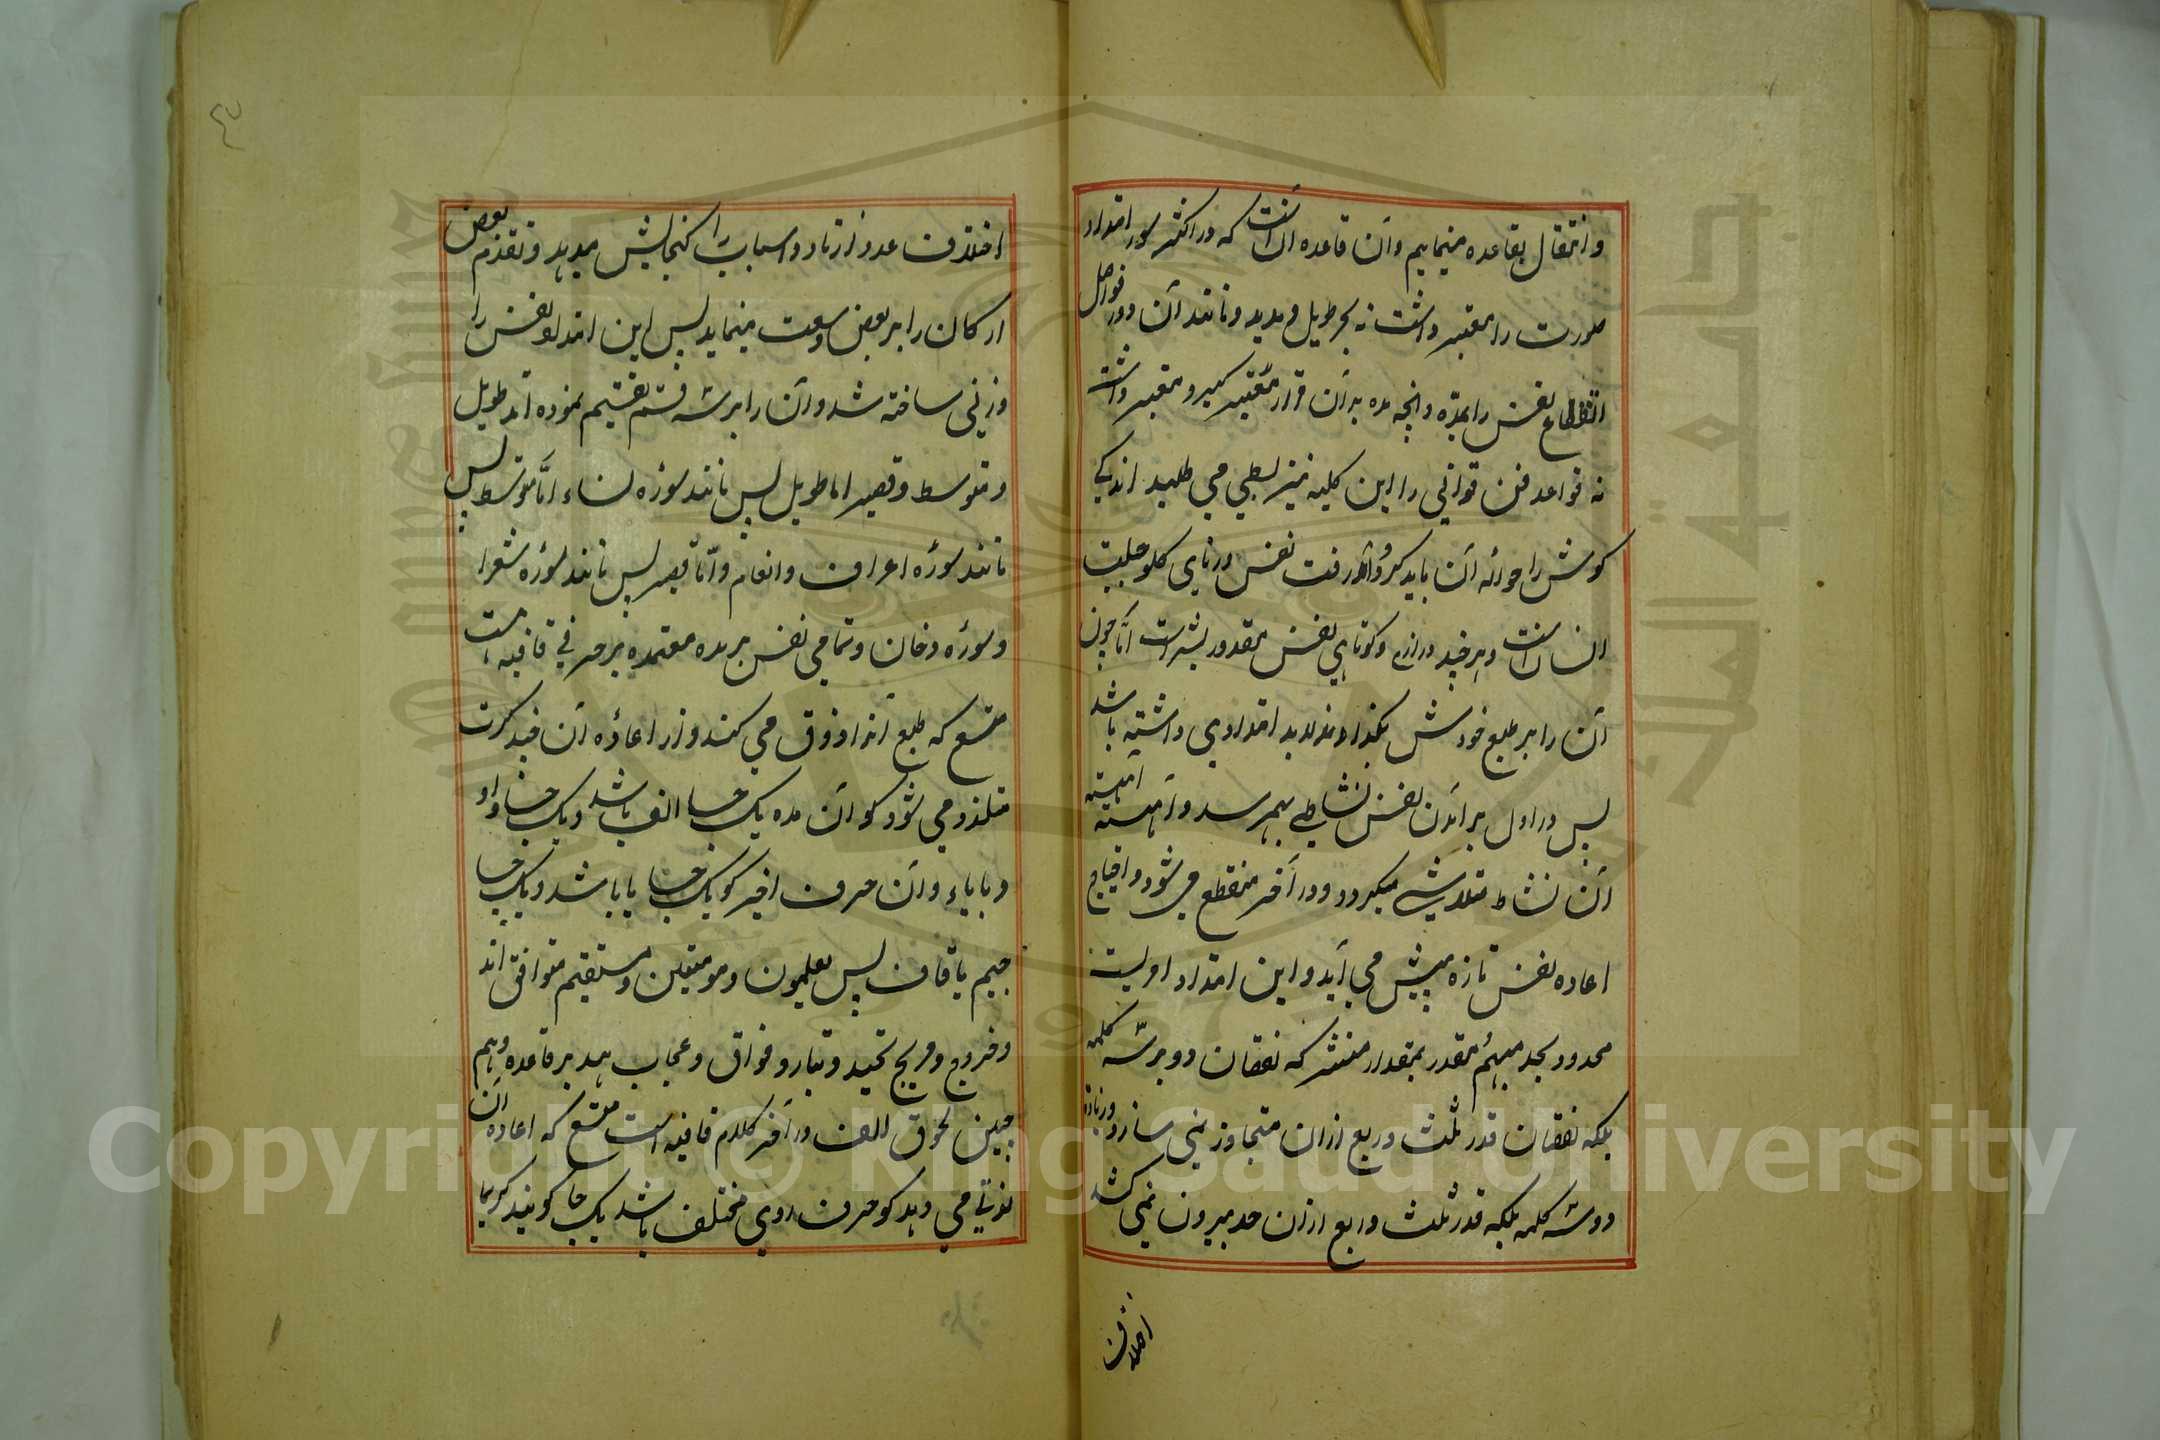 و انتقال بقاعده مینماییم وآن قاعده آن است که در اکثر سور امتداد
صورت را معتبر داشت نه بحر طویل و مدید و مانند آن و در فواصل
انقطاع نفس را بمده وانچه مده بدان قرار گیرد معتبر داشت
نه قواعد فن قوافی را این کلیه نیز بسطی می طلبد اندکی
گوش را حواله آن باید کرد آمد رفت نفس در نای گلو جبلت
انسان است و هر چند درازی و کوتاهی نفس مقدور بشر است اما چون
آن را بر طبع خودش بگذارند لابد امتدادی داشته باشد
پس در اول برآمدن نفس نشاطی بهم رسد و آهسته آهسته
آن نشاط متلاشی میگردد و در آخر منقطع می شود و احتیاج
اعاده نفس تازه پیش می آید و این امتداد امریست
محدود بحد مبهم مقدر بمقدار منتشر که نقصان دو سه کلمه
بلکه نقصان قدر ثلث و ربع ازان متجاوز نمی سازد و زیاده
دو سه کلمه بلکه قدر ثلث و ربع ازان حد بیرون نمی کشد
اختلاف
اختلاف عدد اوتاد و اسباب را گنجایش میدهد و تقدم بعض
ارکان را بر بعض وسعت مینماید پس این امتداد نفس را
وزنی ساخته شد و آن را بر سه قسم تقسیم نموده آمد طویل
و متوسط و قصیر اما طویل پس مانند سوره نساء اما متوسط پس
مانند سوره اعراف و انعام و اما قصیر پس مانند سوره شعرا
و سوره دخان و تمامی نفس بر مده معتمده بر حرفی قافیه است
متسع که طبع آنرا ذوق می کند و از اعاده آن چند کرت
متلذذ می شود گو آن مده یک جا الف باشد و یک جا واو
و یا یاء و آن حرف اخیر گو یک جا با باشد و یک جا
جیم یا قاف پس یعلمون و مومنین و مستقیم متوافق اند
و خروج و مریج تحید و تبار و فواق و عجاب همه بر قاعده و هم
چنین لحوق الف در آخر کلام قافیه است متسع که اعاده آن
لذتی می دهد گو حرف روی مختلف باشد یک جا گویند کریما